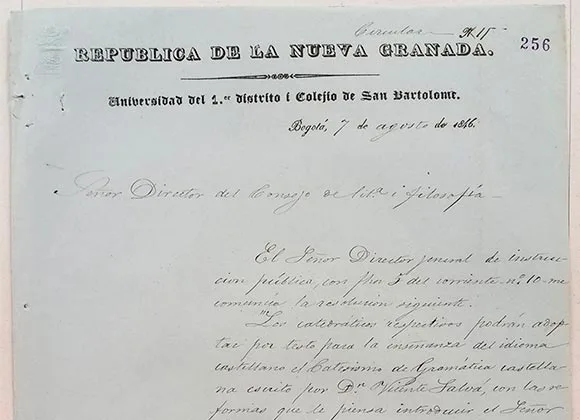 Circular Nº 15
256
REPUBLICA DE LA NUEVA GRANADA.
Universidad del 1.er distrito i Colejio de San Bartolome.
Bogotá, 7 de agosto de 1846.
Señor Director del Consejo de lit.ª i filosofía
El Señor Director jeneral de instruc
cion pública, con fha 5 del corriente nº 10 me
comunica la resolucion siguiente.
"Los catedráticos respectivos podrán adop
tar por testo para la enseñanza del idioma
castellano el Catecismo de Gramática castella
na escrito por Dn. Vicente Salvá, con las re
formas que le piensa introducir el Señor